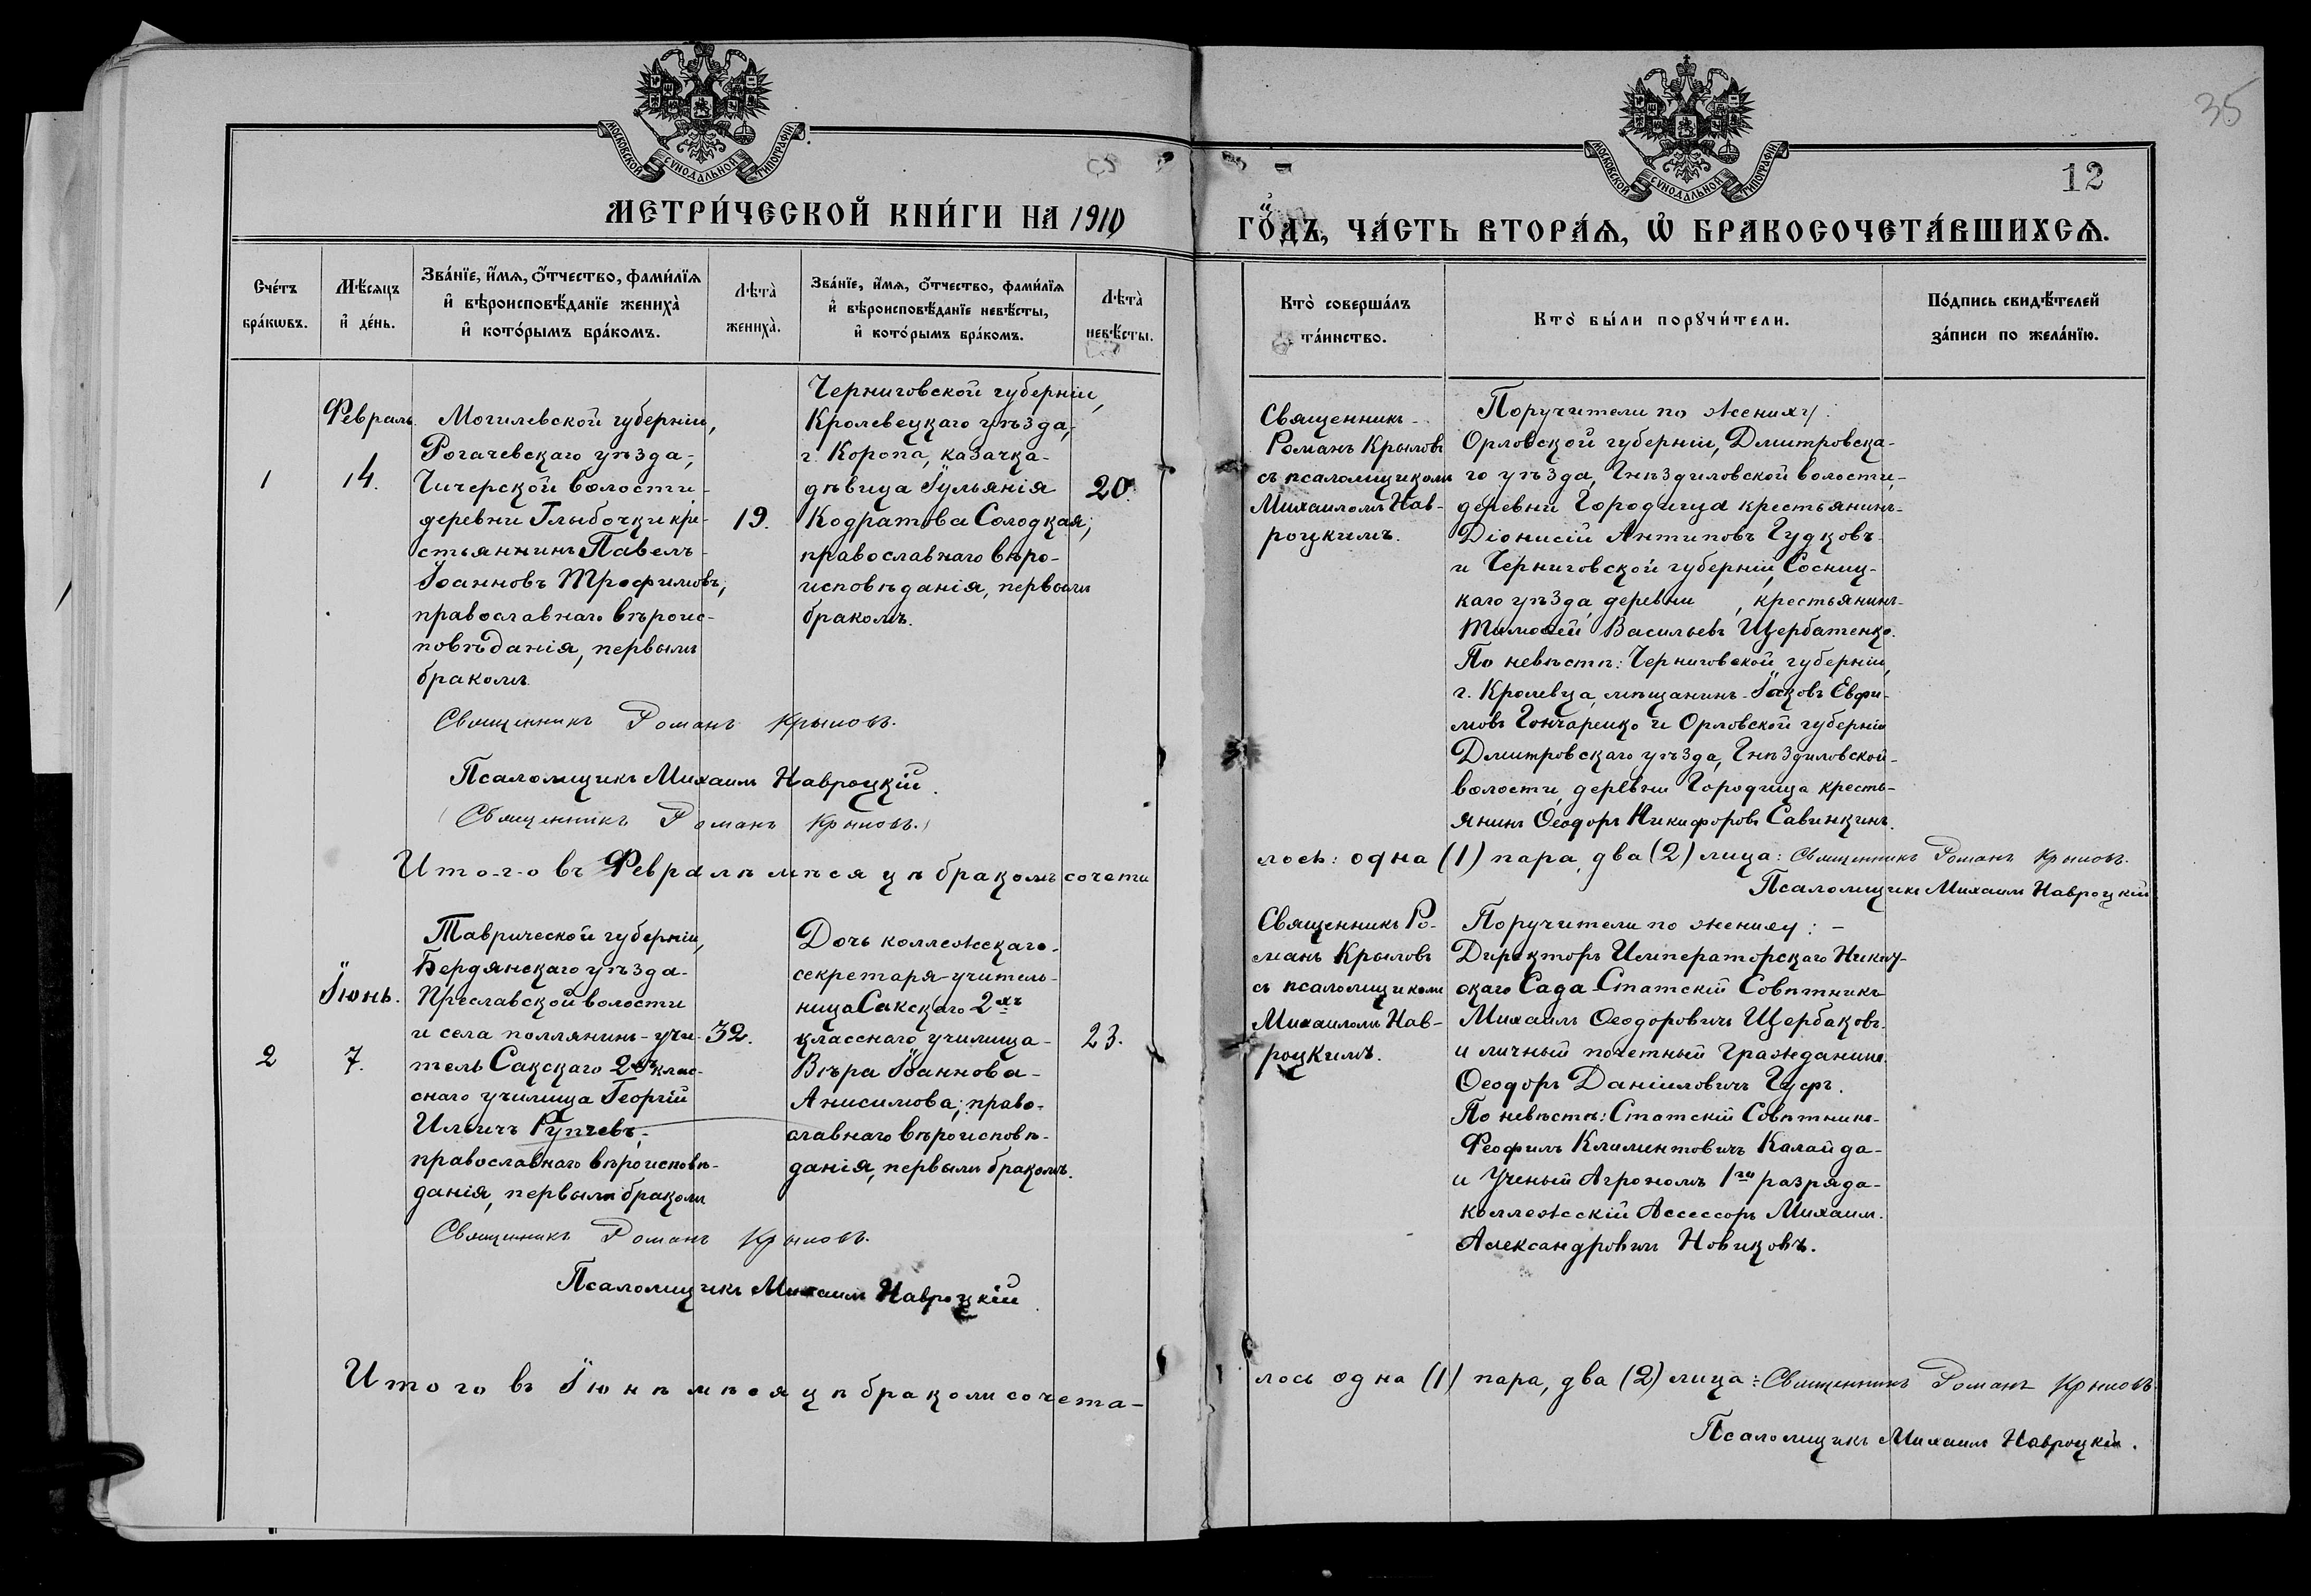 МОСКОВСКОЙ СУНОДАЛЬНОЙ ТИПОГРАФІИ
МОСКОВСКОЙ СУНОДАЛЬНОЙ ТИПОГРАФІИ
35
12
МЕТРИ́ЧЕСКОЙ КНИ́ГИ НА 1910
ГО́ДЪ, ЧА́СТЬ ВТОРА́Ѧ, Ѡ БРАКОСОЧЕТА́ВШИХСѦ.
Сче́тъ
бра́кωвъ.
Мѣ́сяцъ
и҆ де́нь.
Зва́нїе, и҆́мя, ѻ҆́тчество, фами́лїя
и҆ вѣроисповѣ́данїе жениха̀
и҆ кото́рымъ бра́комъ.
Лѣта̀
жениха̀.
Зва́нїе, и҆́мя, ѻ҆́тчество, фами́лїя
и҆ вѣроисповѣ́данїе невѣ́сты,
и҆ кото́рымъ бра́комъ.
Лѣта̀
невѣ́сты.
Кто̀ соверша́лъ
та́инство.
Кто̀ бы́ли порꙋчи́тели.
По́дпись свидѣ́телей
за́писи по жела́нїю.
1
Февраль.
14.
Могилевской губерніи,
Рогачевскаго уѣзда,
Чичерской волости
деревни Глыбочки кре-
стьяннинъ Павелъ
Іоанновъ Трофимовъ,
православнаго вѣроис-
повѣданія, первымъ
бракомъ
19.
Черниговской губерніи,
Кролевецкаго уѣзда,
г. Коропа, казачка-
дѣвица Іуліянія
Кодратова Солодкая,
православнаго вѣро-
исповѣданія, первымъ
бракомъ.
20.
Священникъ
Романъ Крыловъ
съ псаломщикомъ
Михаиломъ Нав-
роцкимъ.
Поручители по жениху:
Орловской губерніи, Дмитровска-
го уѣзда, Гнѣздиловской волости,
деревни Городища крестьянинъ
Діонисій Антиповъ Гудковъ
и Черниговской губерніи, Сосниц-
каго уѣзда, деревни , крестьянинъ
Тимоѳей Васильевъ Щербатенко.
По невѣстѣ: Черниговской губерніи,
г. Кролевца, мѣщанинъ Іаковъ Евфи-
мовъ Гончаренко и Орловской губерніи
Дмитровскаго уѣзда, Гнѣздиловской
волости, деревни Городища кресть-
янинъ Ѳеодоръ Никифоровъ Савинкинъ.
Священникъ Романъ Крыловъ.
Псаломщикъ Михаилъ Навроцкій.
(Священникъ Романъ Крыловъ.)
Итого въ Февралѣ мѣсяцѣ бракомъ сочета
лось: одна (1) пара, два (2) лица: Священникъ Романъ Крыловъ.
Псаломщикъ Михаилъ Навроцкій
2
Іюнь.
7.
Таврической губерніи,
Бердянскаго уѣзда
Преславской волости
и села поллянинъ-учи-
тель Сакскаго 2хъ клас-
снаго училища Георгій
Ильичъ Рупчевъ,
православнаго вѣроисповѣ-
данія, первымъ бракомъ
32.
Дочь коллежскаго
секретаря учитель-
ница Сакскаго 2хъ
класснаго училища
Вѣра Іоаннова
Анисимова, право-
славнаго вѣроисповѣ-
данія, первымъ бракомъ.
23.
Священникъ Ро-
манъ Крыловъ
съ псаломщикомъ
Михаиломъ Нав-
роцкимъ.
Поручители по жениху: -
Директоръ Императорскаго Никит-
скаго Сада Статскій Совѣтникъ
Михаилъ Ѳеодоровичъ Щербаковъ
и личный почетный гражданинъ
Ѳеодоръ Даніиловичъ Гуфъ.
По невѣстѣ: Статскій Совѣтникъ
Феофилъ Климентовичъ Калайда-
и Ученый Агрономъ 1го разряда
коллежскій Ассессоръ Михаилъ
Александровичъ Новиковъ.
Священникъ Романъ Крыловъ.
Псаломщикъ Михаилъ Навроцкій
Итого въ Іюнѣ мѣсяцѣ бракомъ сочета-
лось одна (1) пара, два (2) лица: Священникъ Романъ Крыловъ
Псаломщикъ Михаилъ Навроцкій.